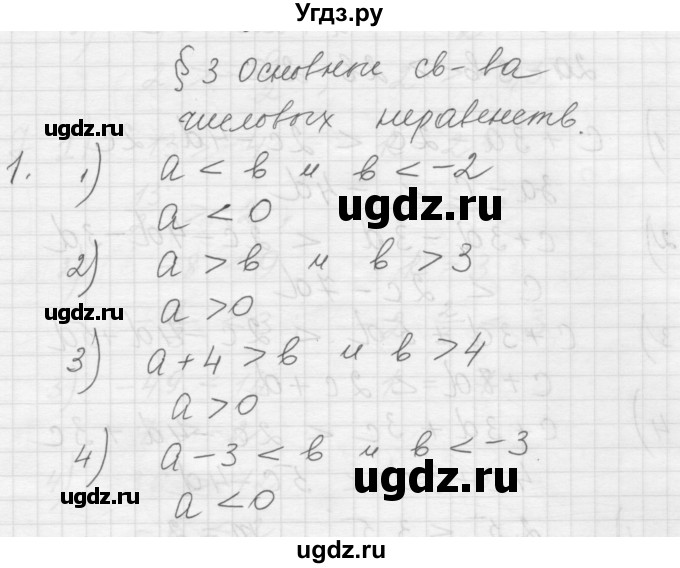 Угдз.ру
§ 3 Основные св-ва
числовых неравенств.
ugdz.ru
1. 1) a < b и b < -2
ugdz.ru
a < 0
2) a > b и b > 3
ugdz.ru
a > 0
3) a + 4 > b и b > 4
ugdz.ru
a > 0
4) a - 3 < b и b < -3
ugdz.ru
ugdz.ru
a < 0
ugdz.ru